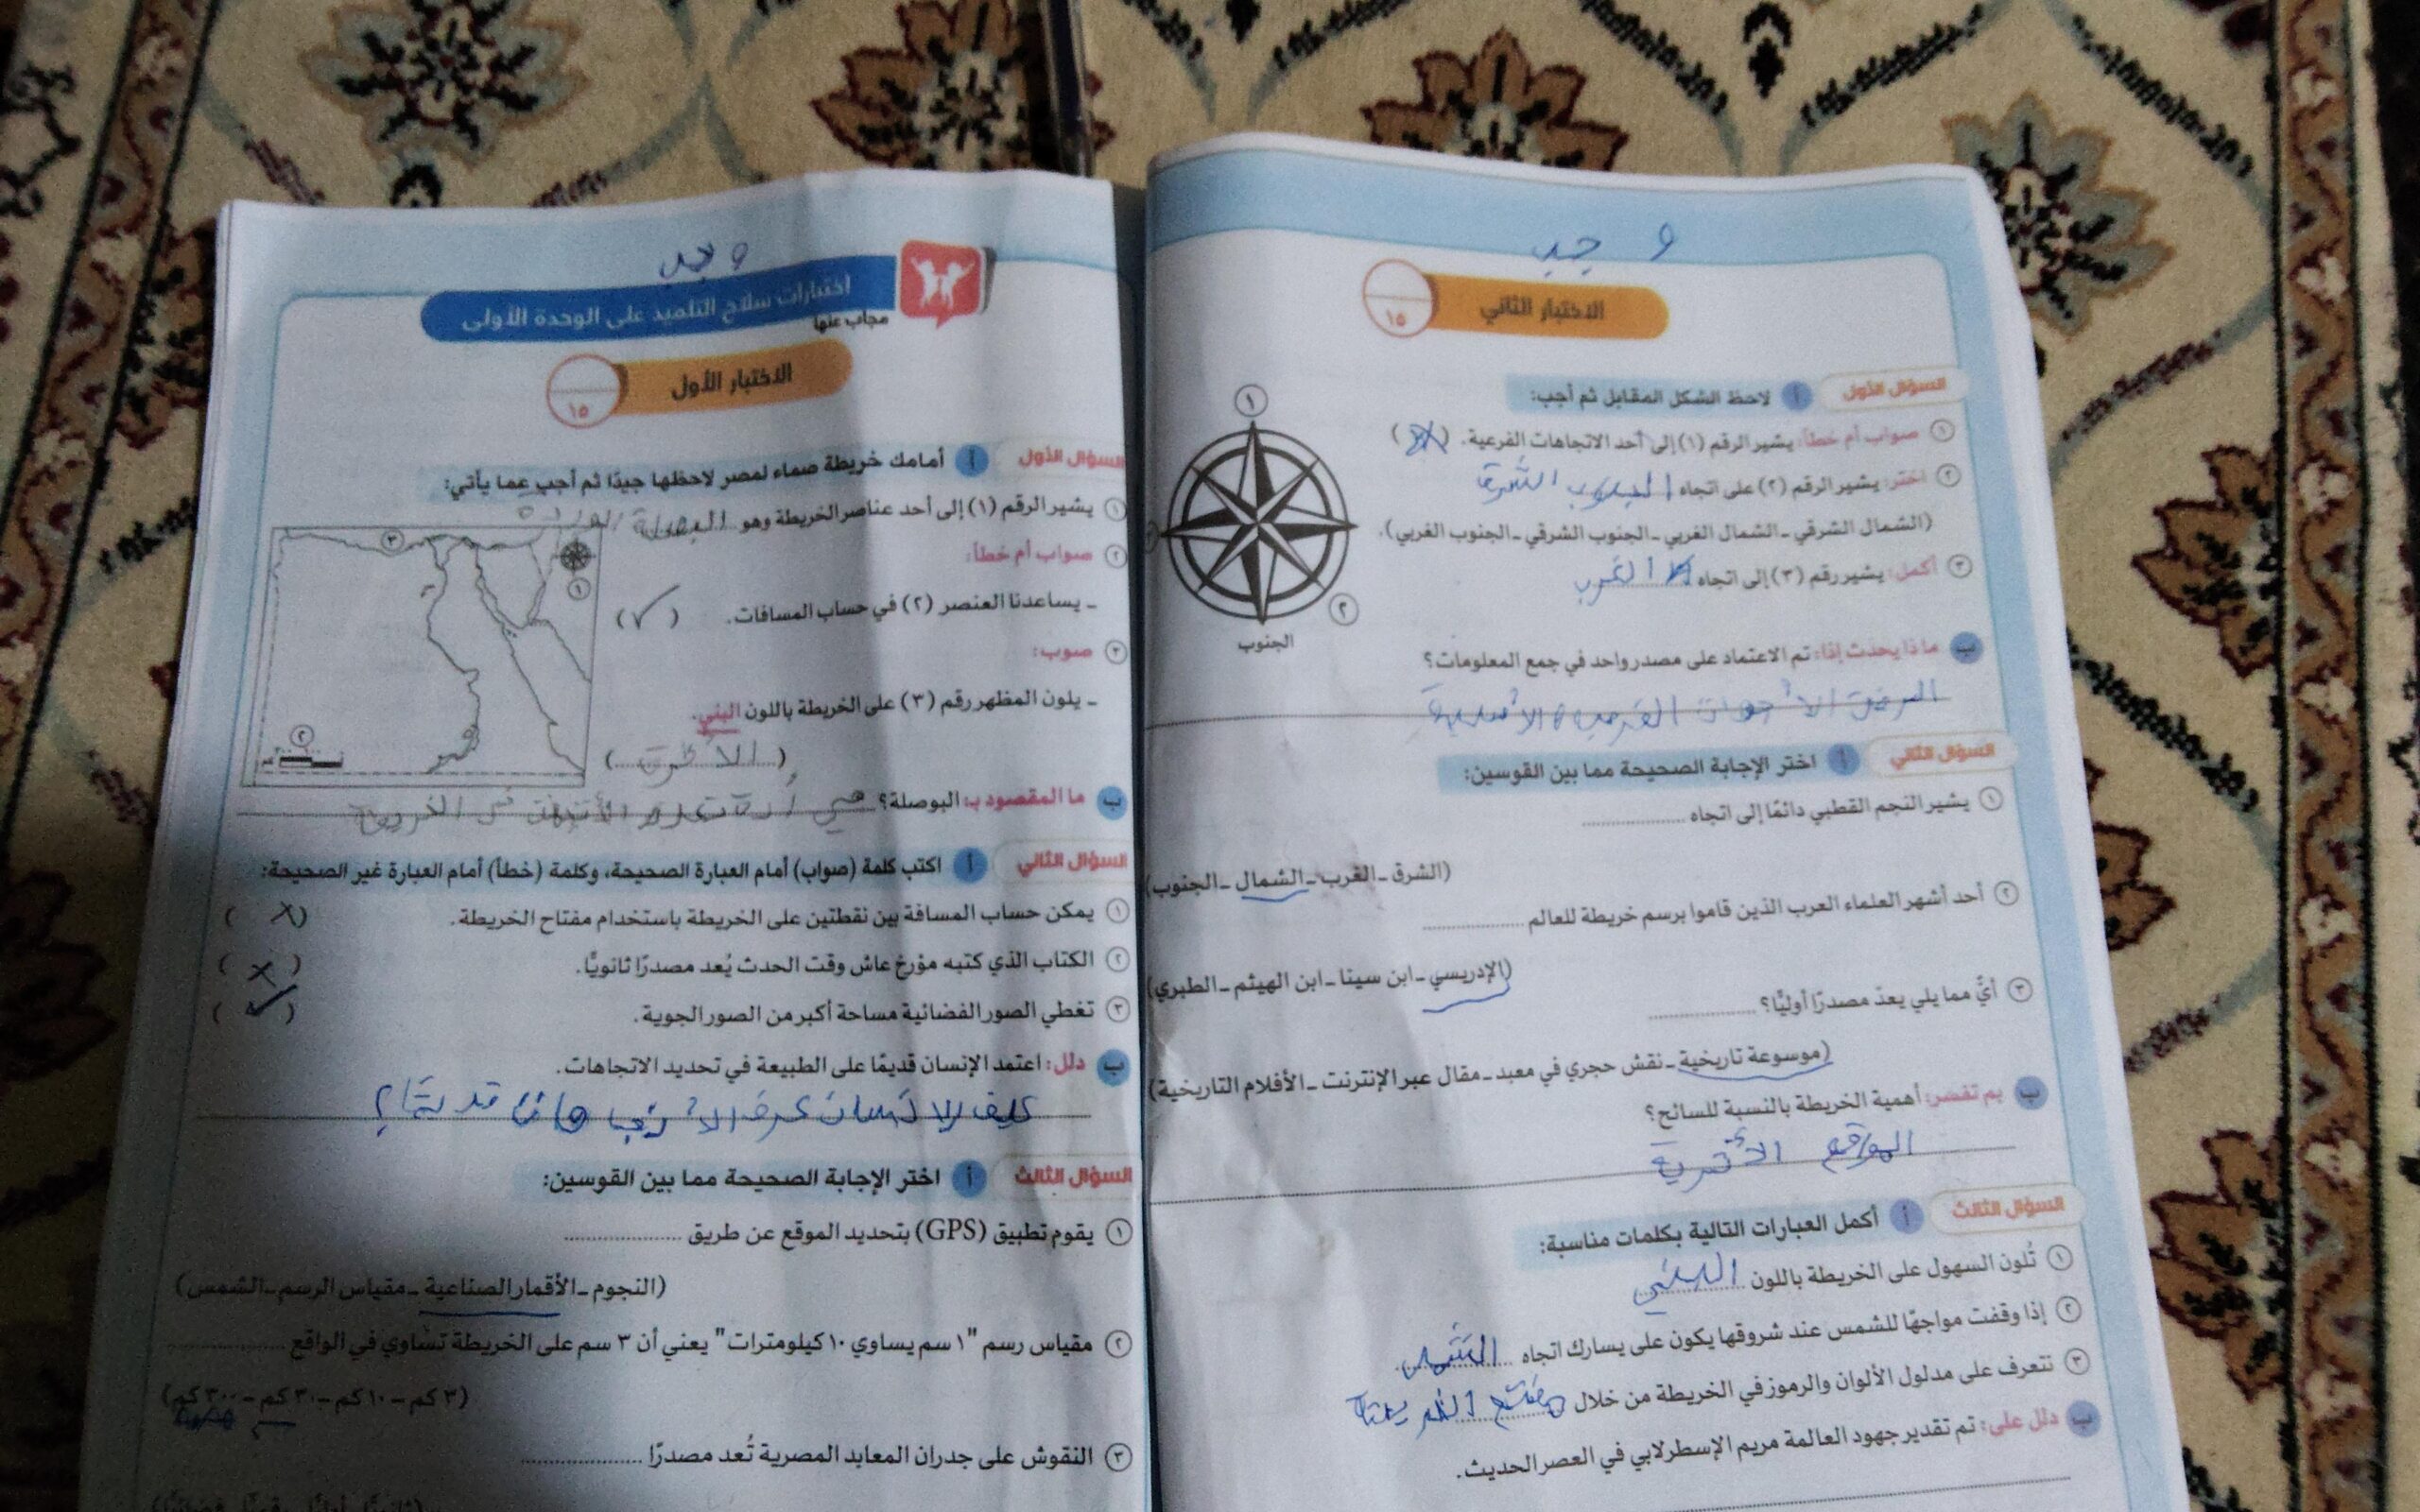 وجب
اختبارات سلاح التلميذ على الوحدة الأولى
مجاب عنها
الاختبار الأول
١٥
السؤال الأول
أ أمامك خريطة صماء لمصر لاحظها جيدًا ثم أجب عما يأتي:
١ يشير الرقم (١) إلى أحد عناصر الخريطة وهو البوصلة
٢ صواب أم خطأ:
ـ يساعدنا العنصر (٢) في حساب المسافات. (✓)
٣ صوب:
ـ يلون المظهر رقم (٣) على الخريطة باللون البني.
(الأزرق)
٣
١
٢
كم
ب ما المقصود بـ: البوصلة؟ هي
السؤال الثاني
أ اكتب كلمة (صواب) أمام العبارة الصحيحة، وكلمة (خطأ) أمام العبارة غير الصحيحة:
١ يمكن حساب المسافة بين نقطتين على الخريطة باستخدام مفتاح الخريطة. (✗)
٢ الكتاب الذي كتبه مؤرخ عاش وقت الحدث يُعد مصدرًا ثانويًّا. (✗)
٣ تغطي الصور الفضائية مساحة أكبر من الصور الجوية. (✓)
ب دلل: اعتمد الإنسان قديمًا على الطبيعة في تحديد الاتجاهات.
السؤال الثالث
أ اختر الإجابة الصحيحة مما بين القوسين:
١ يقوم تطبيق (GPS) بتحديد الموقع عن طريق
(النجوم ـ الأقمار الصناعية ـ مقياس الرسم ـ الشمس)
٢ مقياس رسم "١ سم يساوي ١٠ كيلومترات" يعني أن ٣ سم على الخريطة تساوي في الواقع
(٣ كم – ١٠ كم – ٣٠ كم – ٣٠٠ كم)
٣ النقوش على جدران المعابد المصرية تُعد مصدرًا
وجب
الاختبار الثاني
١٥
السؤال الأول
أ لاحظ الشكل المقابل ثم أجب:
١ صواب أم خطأ: يشير الرقم (١) إلى أحد الاتجاهات الفرعية.
٢ اختر: يشير الرقم (٢) على اتجاه
(الشمال الشرقي ـ الشمال الغربي ـ الجنوب الشرقي ـ الجنوب الغربي).
٣ أكمل: يشير رقم (٣) إلى اتجاه الغرب
١
٢
الجنوب
ب ماذا يحدث إذا: تم الاعتماد على مصدر واحد في جمع المعلومات؟
السؤال الثاني
أ اختر الإجابة الصحيحة مما بين القوسين:
١ يشير النجم القطبي دائمًا إلى اتجاه
(الشرق ـ الغرب ـ الشمال ـ الجنوب)
٢ أحد أشهر العلماء العرب الذين قاموا برسم خريطة للعالم
(الإدريسي ـ ابن سينا ـ ابن الهيثم ـ الطبري)
٣ أيٌّ مما يلي يعدّ مصدرًا أوليًّا؟
(موسوعة تاريخية ـ نقش حجري في معبد ـ مقال عبر الإنترنت ـ الأفلام التاريخية)
ب بم تفسر: أهمية الخريطة بالنسبة للسائح؟
المواقع الأثرية
السؤال الثالث
أ أكمل العبارات التالية بكلمات مناسبة:
١ تُلون السهول على الخريطة باللون
٢ إذا وقفت مواجهًا للشمس عند شروقها يكون على يسارك اتجاه الشمال
٣ نتعرف على مدلول الألوان والرموز في الخريطة من خلال
ب دلل على: تم تقدير جهود العالمة مريم الإسطرلابي في العصر الحديث.